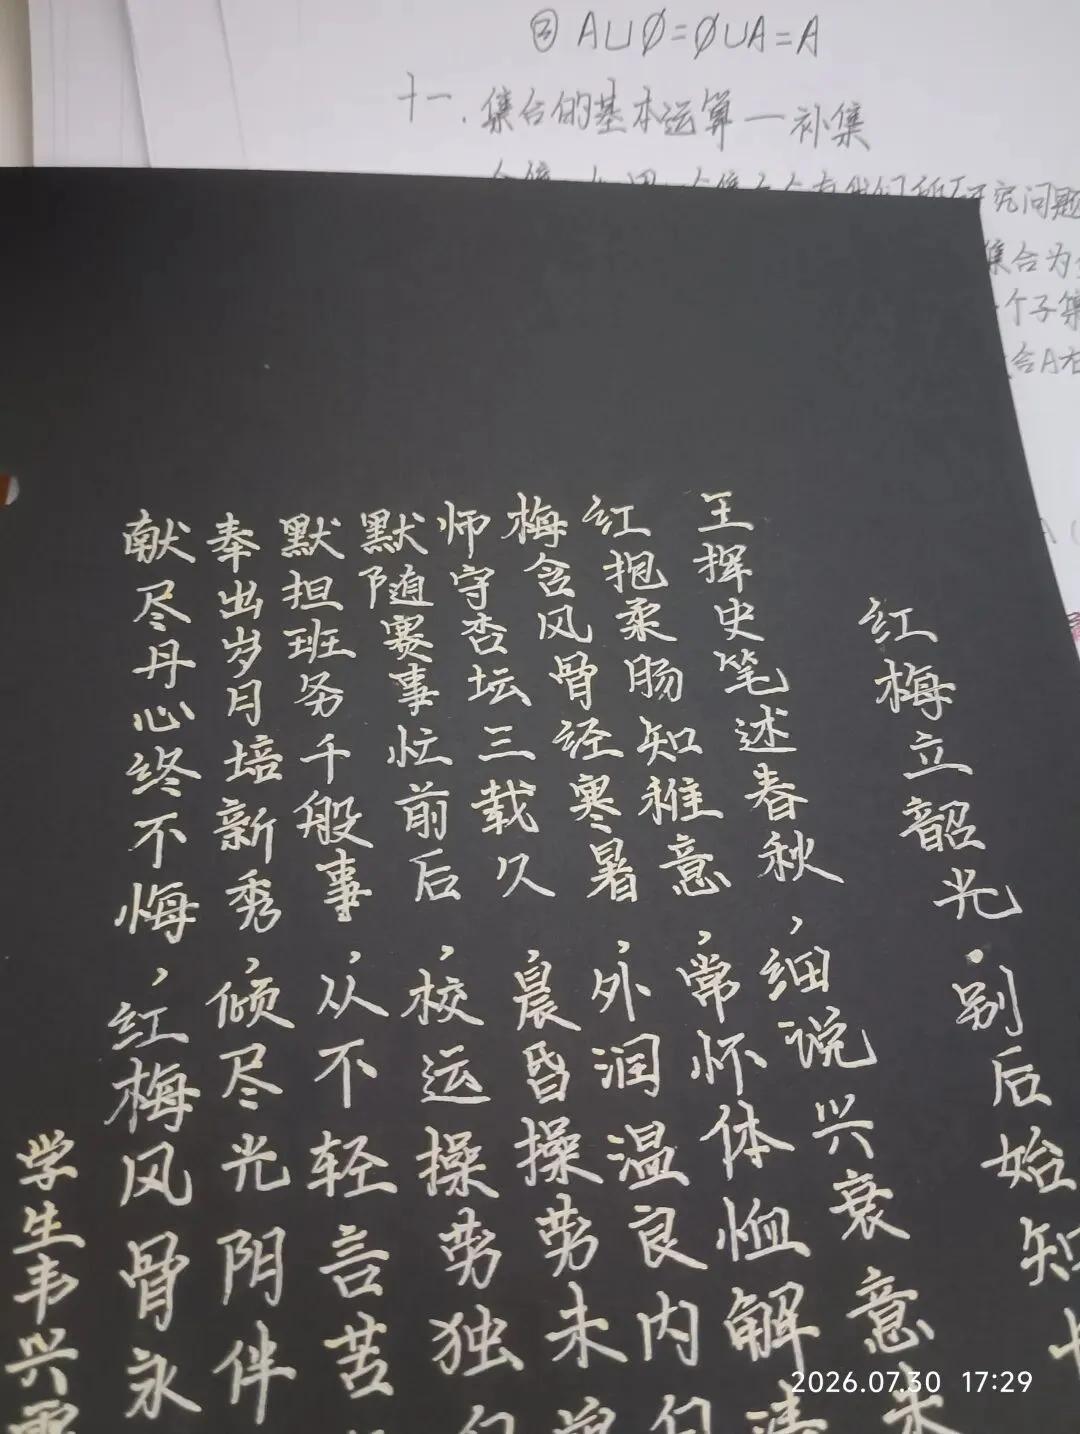 ③ A∪∅=∅∪A=A
十一.集合的基本运算一补集
研究问题
集合为
个子集
合A在
红梅立韶光·别后始知
王挥史笔述春秋，细说兴衰意未
红抱柔肠知稚意，常怀体恤解
梅含风骨经寒暑，外润温良内
师守杏坛三载久，晨昏操劳未
默随赛事忙前后，校运操劳独
默担班务千般事，从不轻言苦
奉出岁月培新秀，倾尽光阴伴
献尽丹心终不悔，红梅风骨永
学生韦兴
2026.07.30 17:29